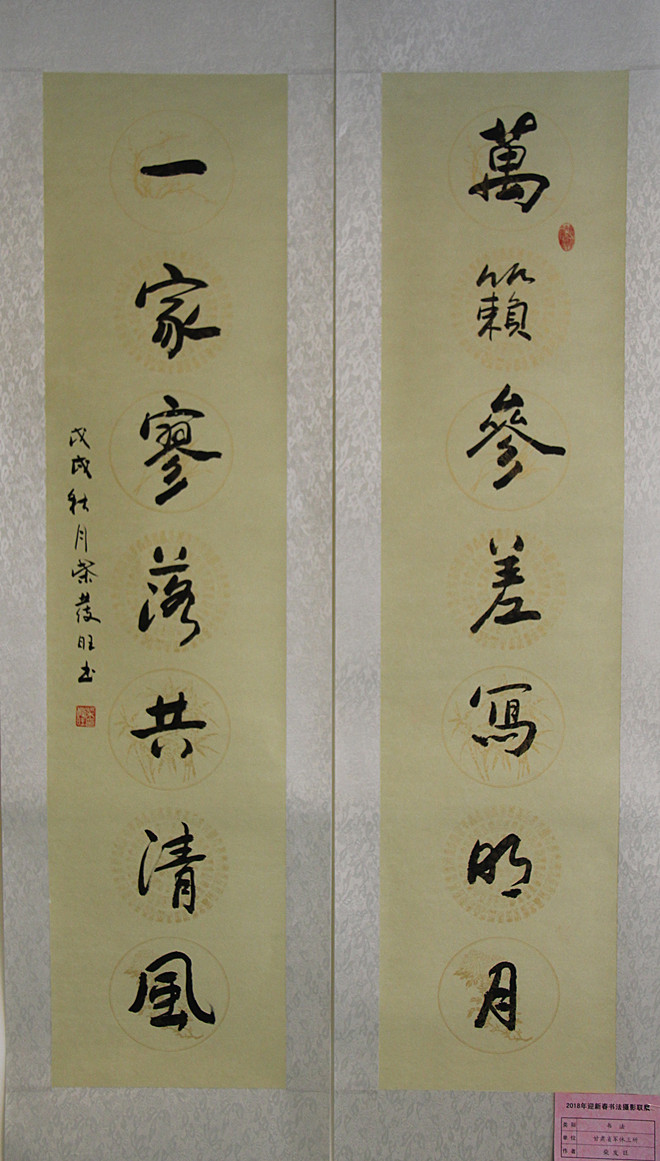 萬籟參差寫明月
一家寥落共清風
戊戌秋月柴發旺书
2018年迎新春书法摄影联展
类别 书法
单位 甘肃省军休三所
作者